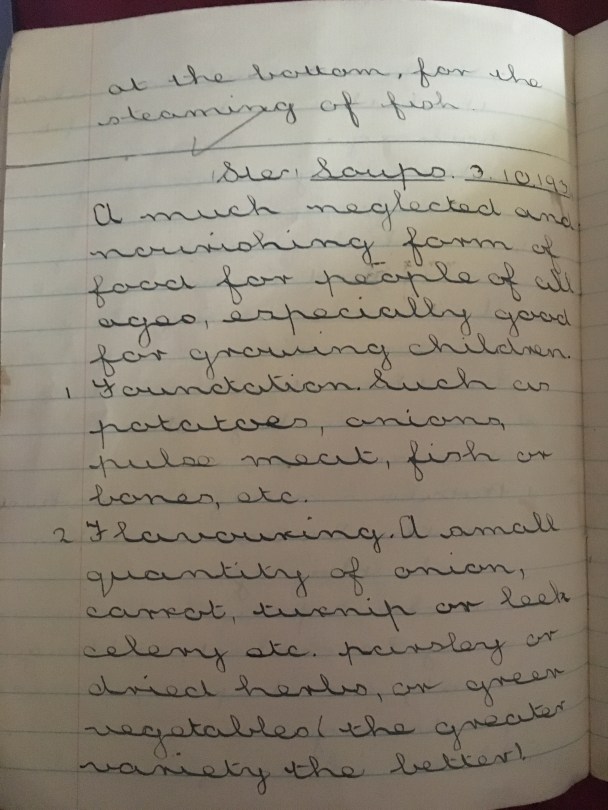 at the bottom, for the
steaming of fish.
Soups. 3.10.193
A much neglected and
nourishing form of
food for people of all
ages, especially good
for growing children.
1 Foundation. Such as
potatoes, onions,
pulse meat, fish or
bones, etc.
2 Flavouring. A small
quantity of onion,
carrot, turnip or leek
celery etc. parsley or
dried herbs, or green
vegetables (the greater
variety the better).